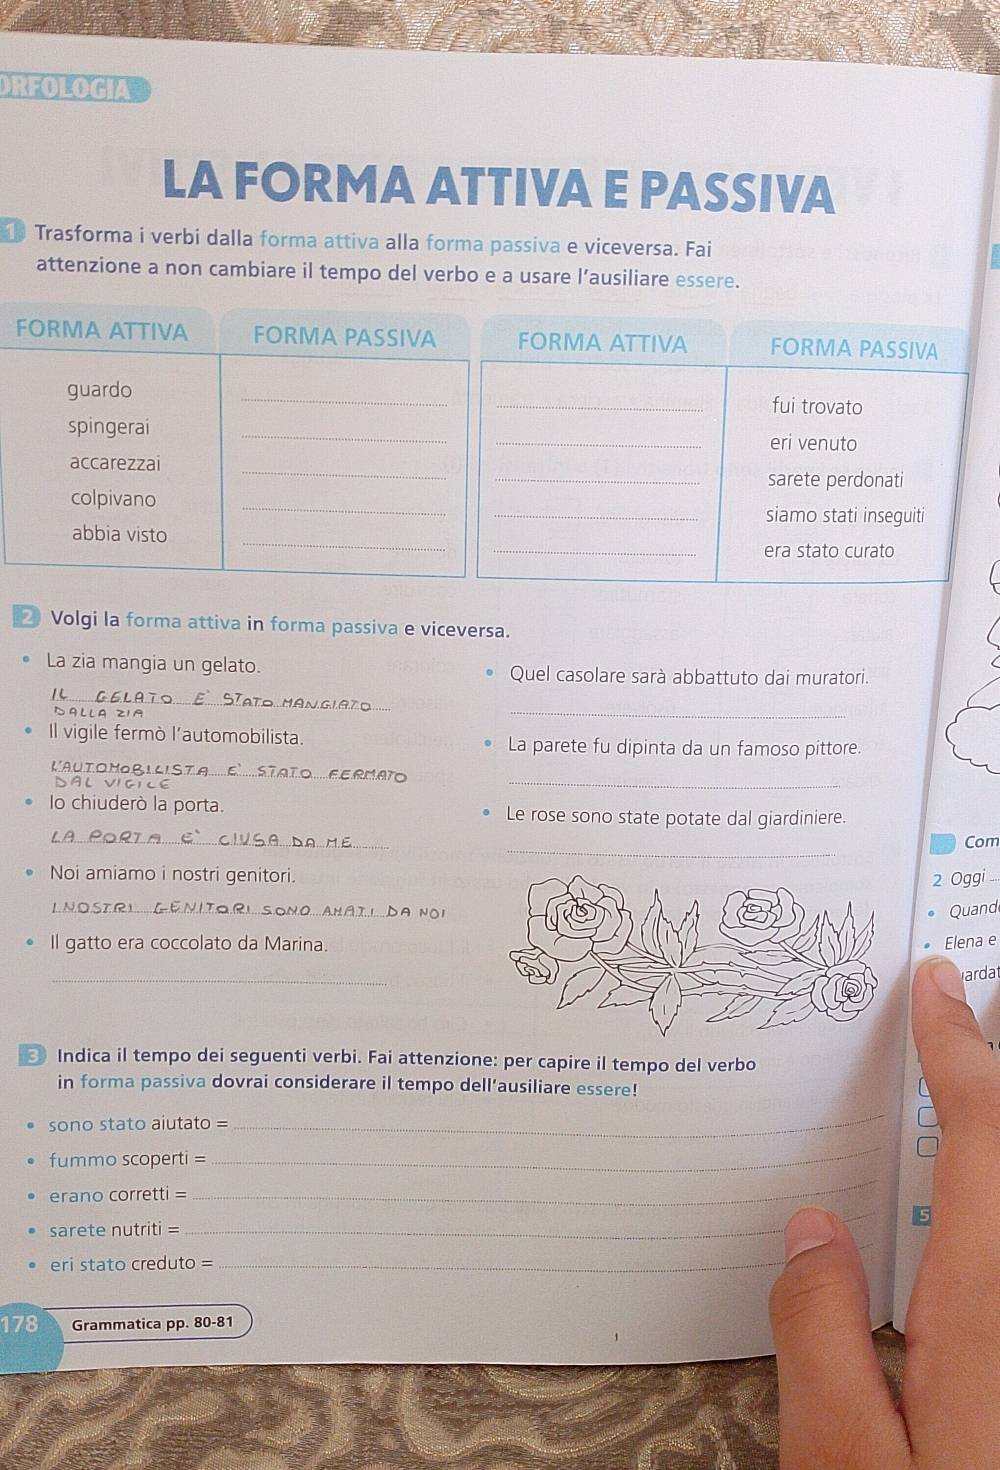 ORFOLOGIA
LA FORMA ATTIVA E PASSIVA
1 Trasforma i verbi dalla forma attiva alla forma passiva e viceversa. Fai
attenzione a non cambiare il tempo del verbo e a usare l'ausiliare essere.
FORMA ATTIVA FORMA PASSIVA
guardo
spingerai
accarezzai
colpivano
abbia visto
FORMA ATTIVA FORMA PASSIVA
fui trovato
eri venuto
sarete perdonati
siamo stati inseguiti
era stato curato
2 Volgi la forma attiva in forma passiva e viceversa.
• La zia mangia un gelato.
IL GELATO E' STATO MANGIATO
DALLA ZIA
• Il vigile fermò l'automobilista.
L'AUTOMOBILISTA E' STATO FERMATO
DAL VIGILE
• Io chiuderò la porta.
LA PORTA E' CIUSA DA ME
• Noi amiamo i nostri genitori.
I NOSTRI GENITORI SONO AMATI DA NOI
• Il gatto era coccolato da Marina.
• Quel casolare sarà abbattuto dai muratori.
• La parete fu dipinta da un famoso pittore.
• Le rose sono state potate dal giardiniere.
3 Indica il tempo dei seguenti verbi. Fai attenzione: per capire il tempo del verbo
in forma passiva dovrai considerare il tempo dell'ausiliare essere!
• sono stato aiutato =
• fummo scoperti =
• erano corretti =
• sarete nutriti =
• eri stato creduto =
178 Grammatica pp. 80-81
Com
2 Oggi
• Quand
• Elena e
ardat
5